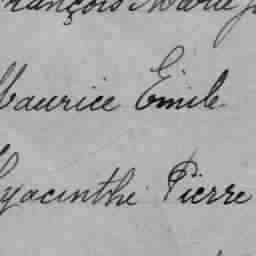 François Marie
Maurice Émile
Hyacinthe Pierre